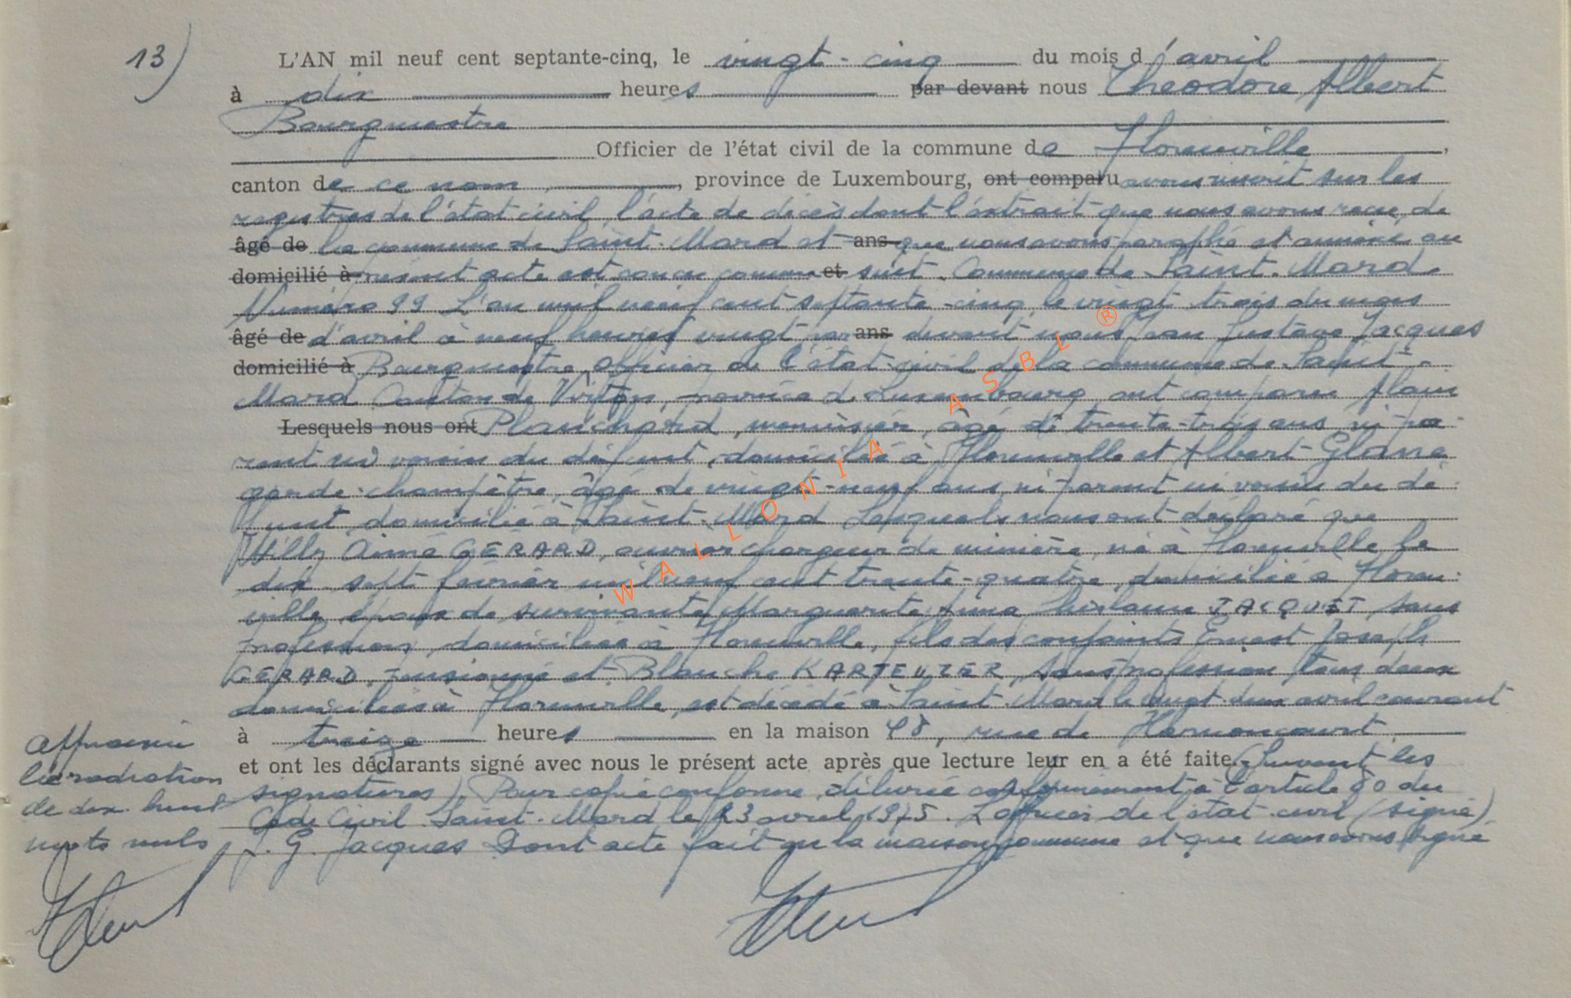 13) L'AN mil neuf cent septante-cinq, le vingt-cinq du mois d'avril
à dix heures par devant nous Théodore Albert
Bourgmestre
Officier de l'état civil de la commune de Florenville,
canton de ce nom, province de Luxembourg, ont comparu avons inscrit sur les
registres de l'état civil l'acte de décès dont l'extrait que nous avons reçu de
âgé de la commune de Saint-Mard et ans que nous avons paraphé et annexé au
domicilié à présent acte est conçu comme et suit. Commune de Saint-Mard.
Numéro 99 L'an mil neuf cent septante-cinq, le vingt trois du mois
âgé de d'avril à neuf heures vingt par ans devant nous, Gustave Jacques
domicilié à Bourgmestre, officier de l'état civil de la commune de Saint-
Mard Canton de Virton, province de Luxembourg, ont comparu Alain
Lesquels nous ont Planchard, menuisier, âgé de trente-trois ans ni pa-
rent ni voisin du défunt, domicilié à Florenville et Albert Glane
garde-champêtre, âgé de vingt-neuf ans, ni parent ni voisin du dé-
funt domicilié à Saint-Mard Lesquels nous ont déclaré que
Willy Aimé GÉRARD, ouvrier chargeur de minière, né à Florenville le
dix sept février mil neuf cent trente-quatre, domicilié à Floren-
ville, époux de survivante Marguerite Anna Ghislaine JACQUET sans
profession, domiciliée à Florenville, fils des conjoints Ernest Joseph
GÉRARD, pensionné et Blanche KARTEUZER, sans profession tous deux
domiciliés à Florenville, est décédé à Saint-Mard le vingt-deux avril courant
à treize heures en la maison 48, rue de Harnoncourt
et ont les déclarants signé avec nous le présent acte après que lecture leur en a été faite. (Suivent les
signatures). Pour copie conforme, délivrée conformément à l'article 80 du
Code Civil. Saint-Mard le 23 avril 1975. L'officier de l'état civil (signé)
J. G. Jacques Dont acte fait en la maison commune et que nous avons signé
Approuvé
la radiation
de dix-huit
mots nuls
W A L L O N I A A S B L ®